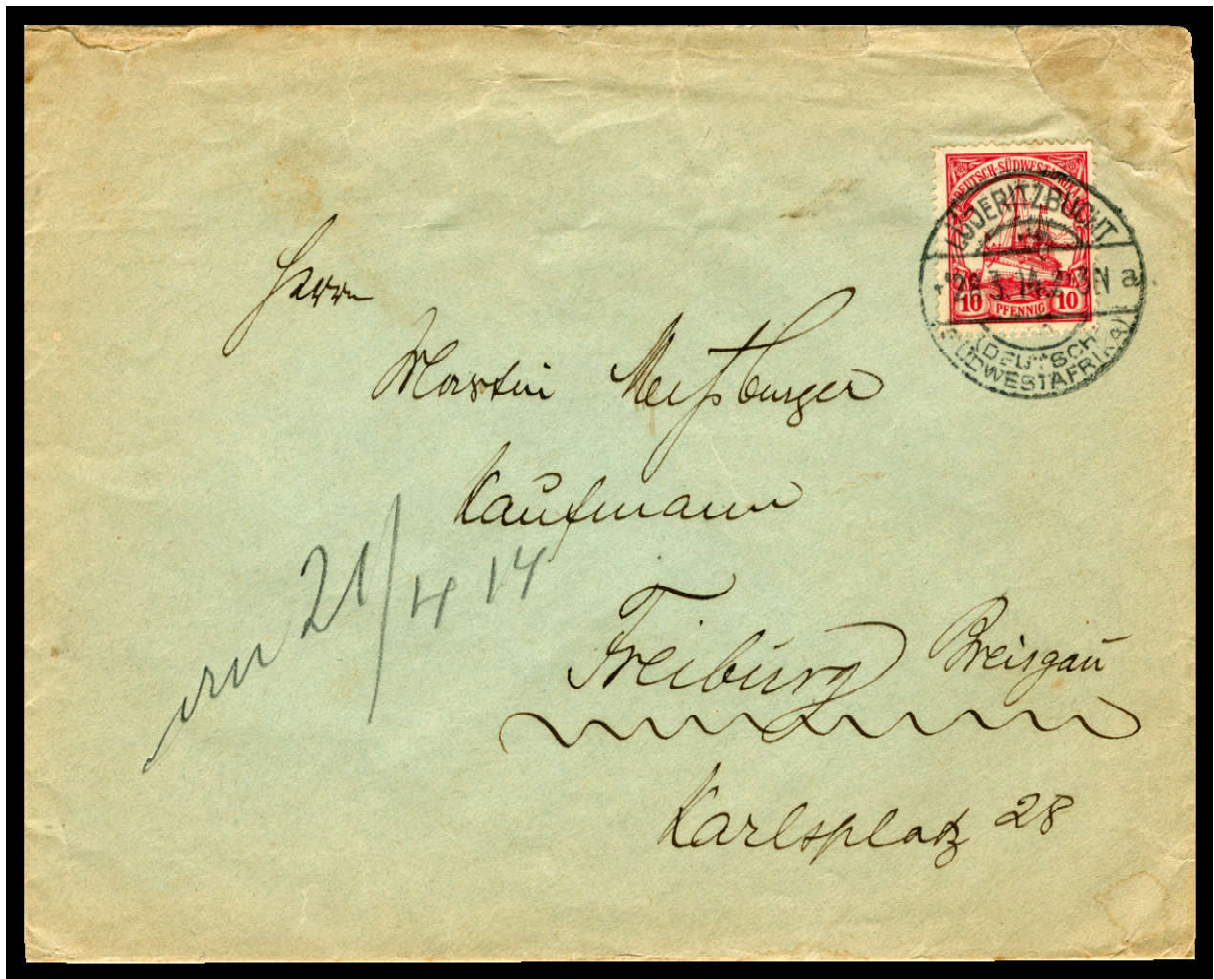 DEUTSCH-SÜDWESTAFRIKA
LÜDERITZBUCHT
3.14. 2-3N a
10 PFENNIG 10
(DEUTSCH-
SÜDWESTAFRIKA)
Herrn
Martin Meißburger
Kaufmann
21/4 14
Freiburg Breisgau
Karlsplatz 28